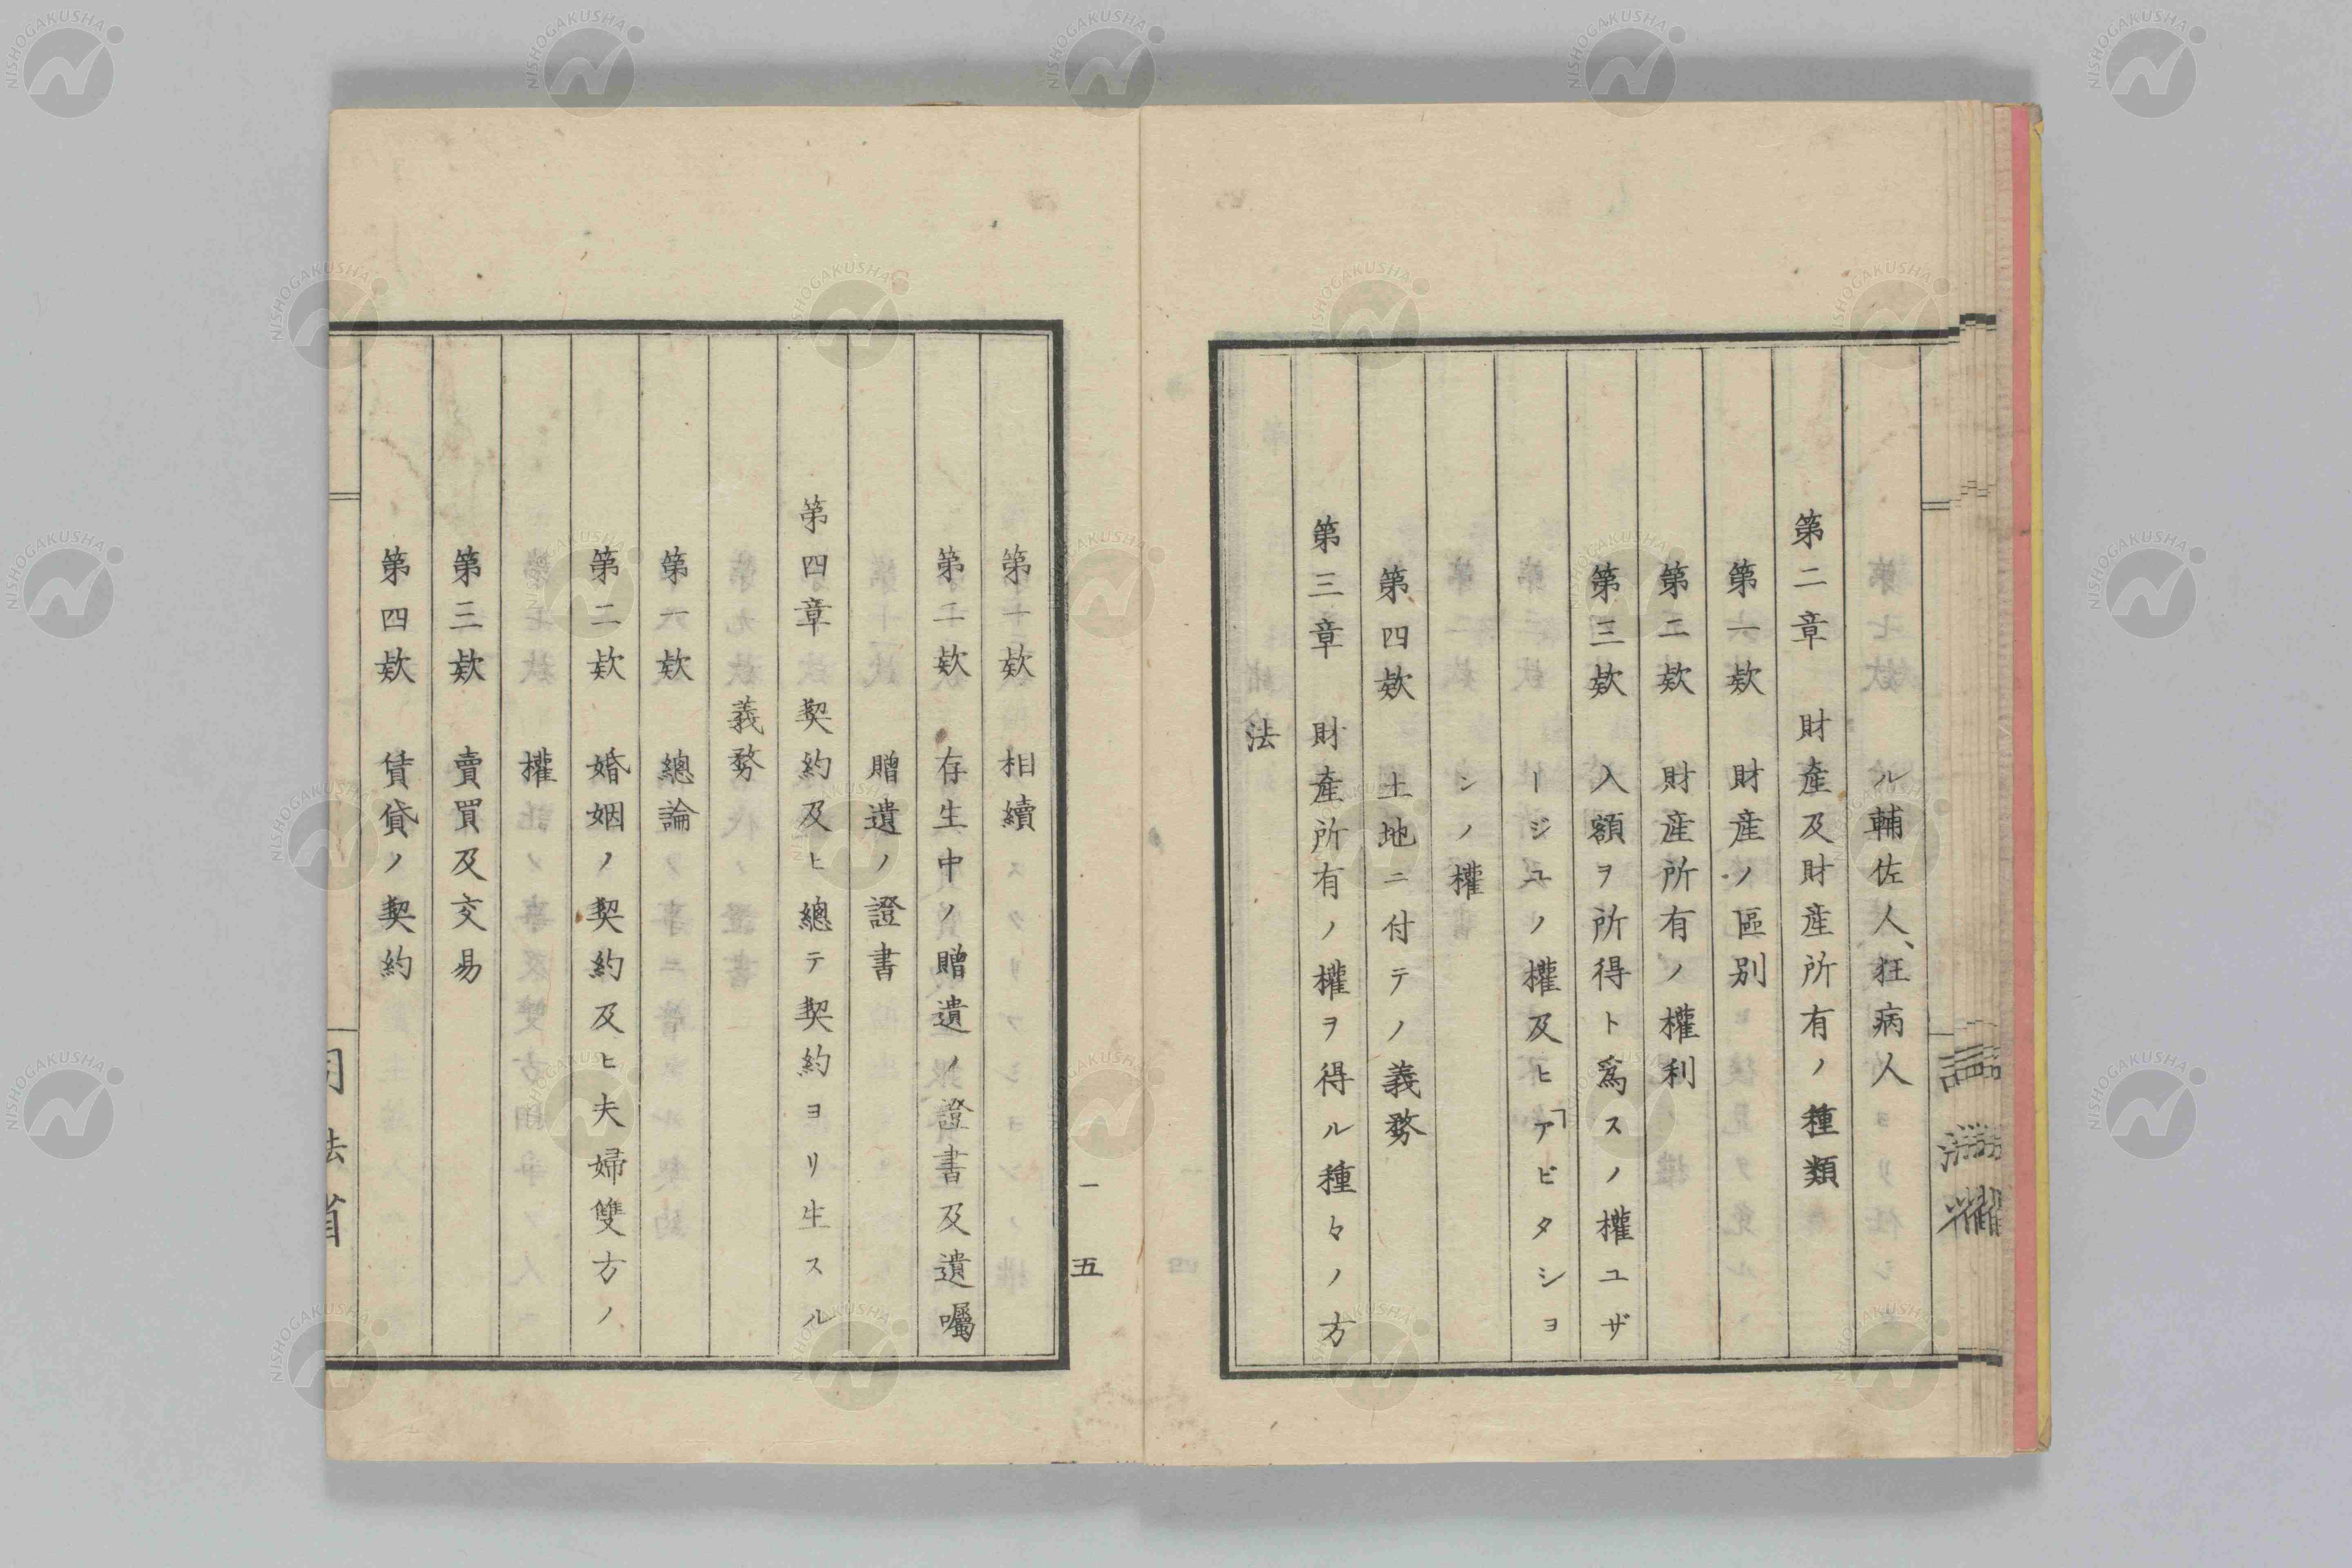 ル輔佐人、狂病人
第二章　財產及財產所有ノ種類
第一欵　財産ノ區別
第二欵　財産所有ノ權利
第三欵　入額ヲ所得ト爲スノ權ユザ
ージユノ權及ヒ「アビタシヨ
ンノ權
第四欵　土地ニ付テノ義務
第三章　財產所有ノ權ヲ得ル種々ノ方
法
一
五
第一欵　相續
第二欵　存生中ノ贈遺ノ證書及遺囑
贈遺ノ證書
第四章　契約及ヒ總テ契約ヨリ生スル
義務
第一欵　總論
第二欵　婚姻ノ契約及ヒ夫婦雙方ノ
權
第三欵　賣買及交易
第四欵　賃貸ノ契約
NISHOGAKUSHA